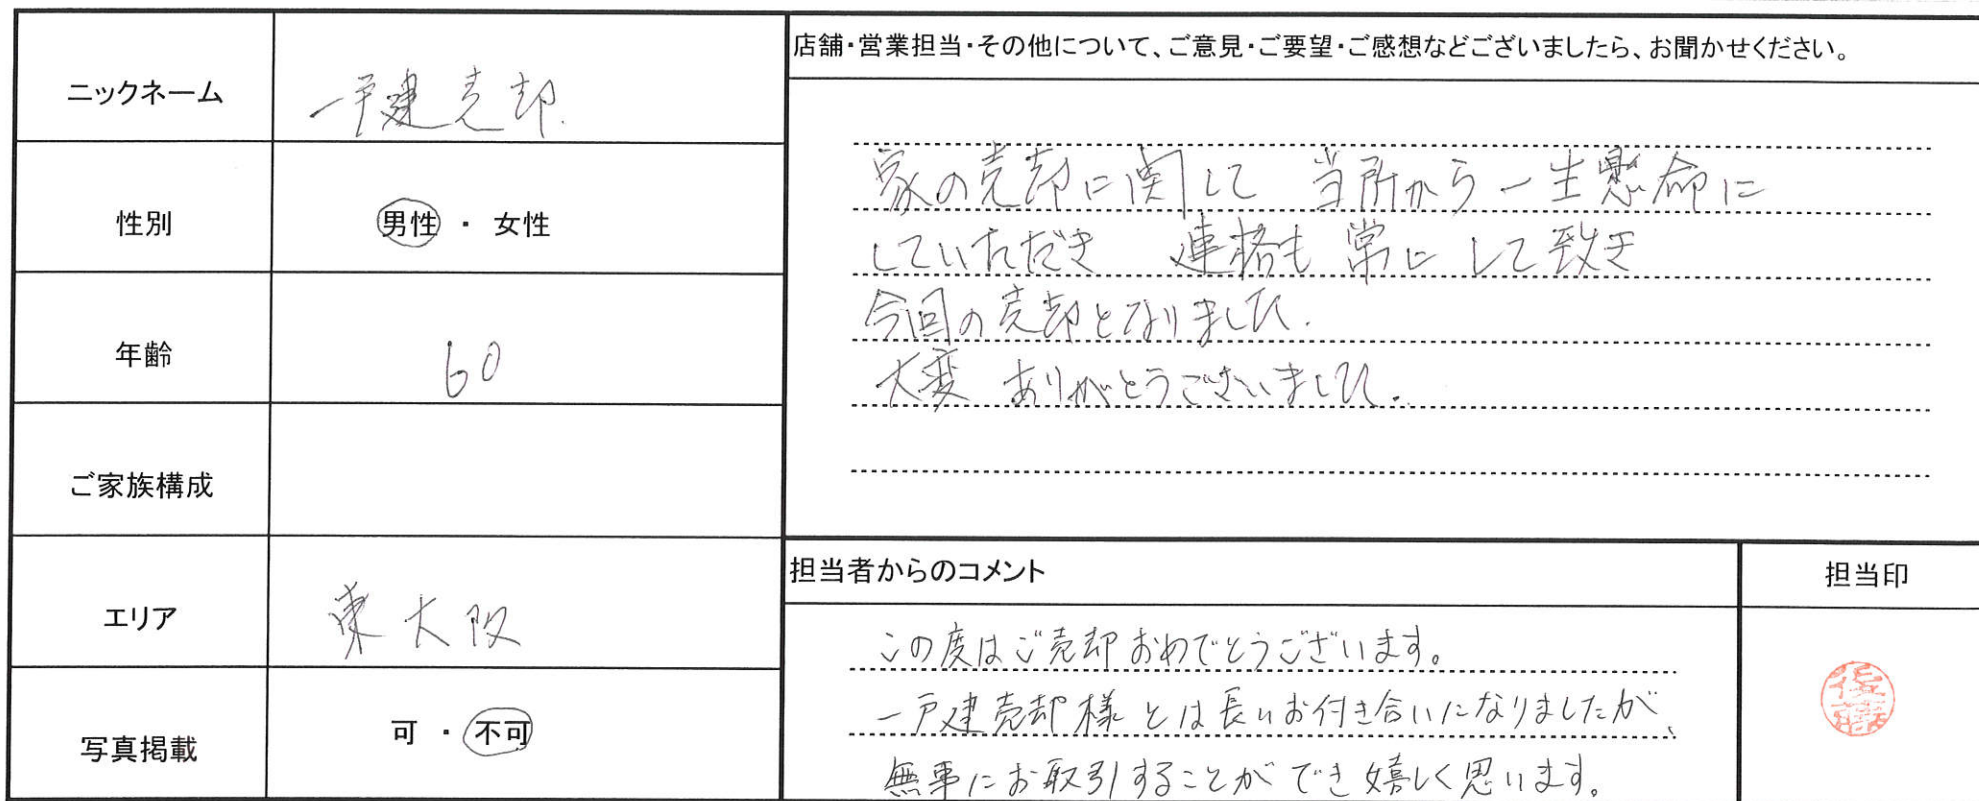 ニックネーム 一戸建売却.
性別 男性 ・ 女性
年齢 60
ご家族構成
エリア 東大阪
写真掲載 可 ・ 不可
店舗・営業担当・その他について、ご意見・ご要望・ご感想などございましたら、お聞かせください。
家の売却に関して 当所から一生懸命に
していただき 連絡も常にして致き
今回の売却となりました.
大変 ありがとうございました.
担当者からのコメント
この度はご売却おめでとうございます。
一戸建売却様とは長いお付き合いになりましたが、
無事にお取引することができ嬉しく思います。
担当印
後藤